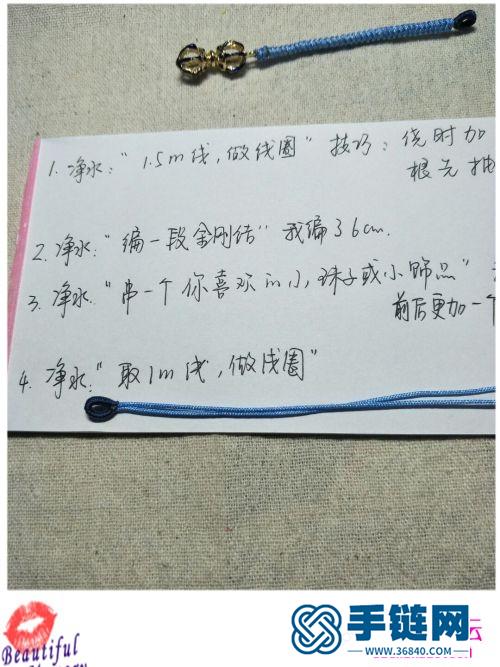 1. 净水:"1.5m线,做线圈" 技巧:绕时加
根无
2. 净水:"编一段金刚结" 我编了6cm.
3. 净水"串一个你喜欢的小珠子或小饰品"
前后更加一个
4. 净水:"取1m线,做线圈"
Beautiful
手链网
www.36840.com